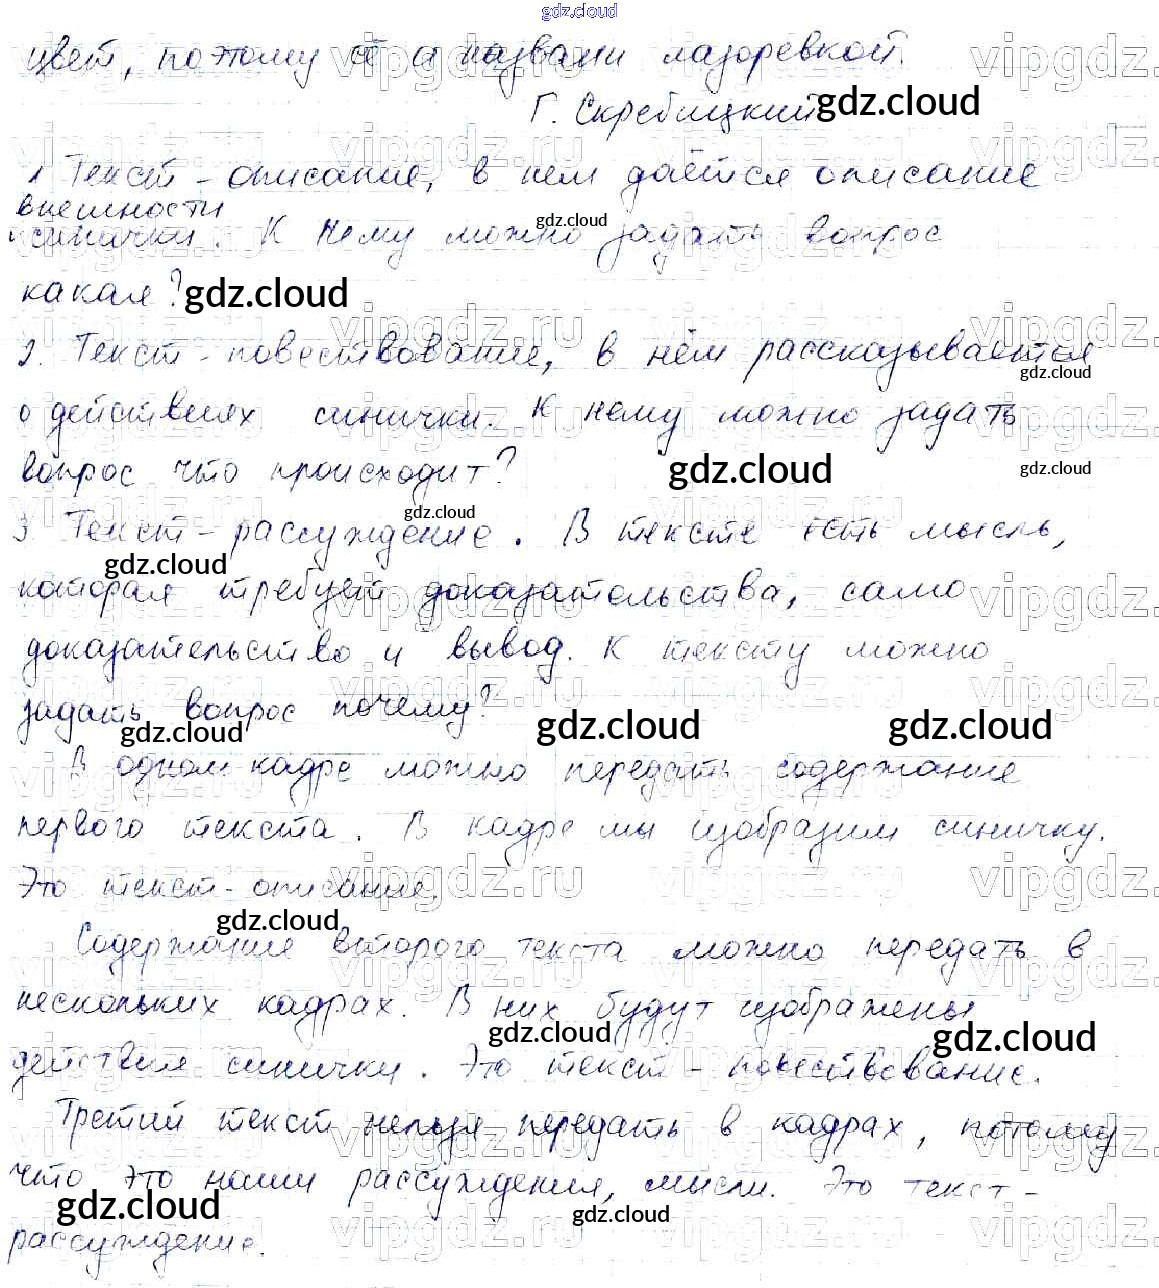 gdz.cloud
цвет, поэтому её и назвали лазоревкой.
Г. Скребицкий
gdz.cloud
1 Текст-описание, в нем даётся описание
внешности
синички. К нему можно задать вопрос
gdz.cloud
какая?
gdz.cloud
2. Текст-повествование, в нём рассказывается
gdz.cloud
о действиях синички. К нему можно задать
вопрос что происходит?
gdz.cloud
gdz.cloud
gdz.cloud
3 Текст-рассуждение. В тексте есть мысль,
gdz.cloud
которая требует доказательства, само
доказательство и вывод. К тексту можно
задать вопрос почему?
gdz.cloud
gdz.cloud
gdz.cloud
В одном кадре можно передать содержание
первого текста. В кадре мы изобразим синичку.
Это текст-описание.
gdz.cloud
Содержание второго текста можно передать в
нескольких кадрах. В них будут изображены
gdz.cloud
gdz.cloud
действия синички. Это текст-повествование.
Третий текст нельзя передать в кадрах, потому
что это наши рассуждения, мысли. Это текст-
gdz.cloud
gdz.cloud
рассуждение.